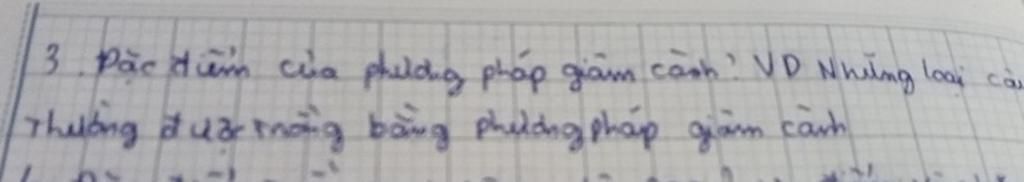 3. Đặc điểm của phương pháp giâm cành? VD Những loại câ
Thường được trồng bằng phương pháp giâm cành